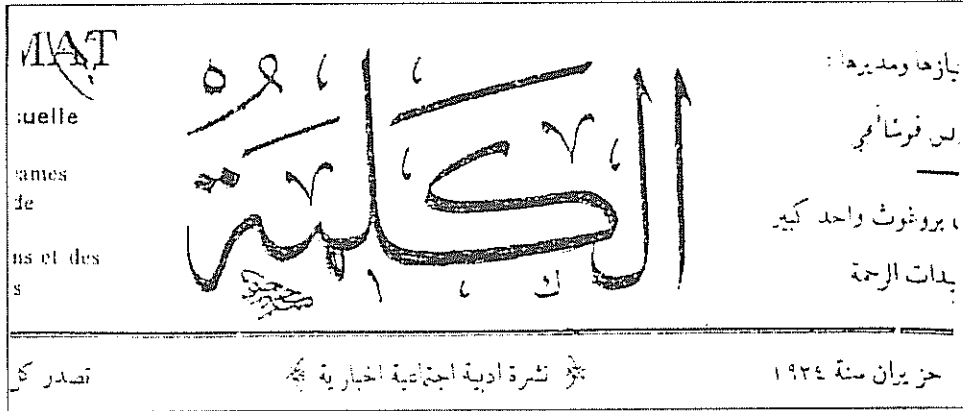 MAT
suelle
ames
de
ns et des
s
الكلمة
يازها ومديرها :
بروغوث واحد كبير
يدات الرحمة
حزيران سنة ١٩٢٤
نشرة ادبية اجتماعية اخبارية
تصدر كل